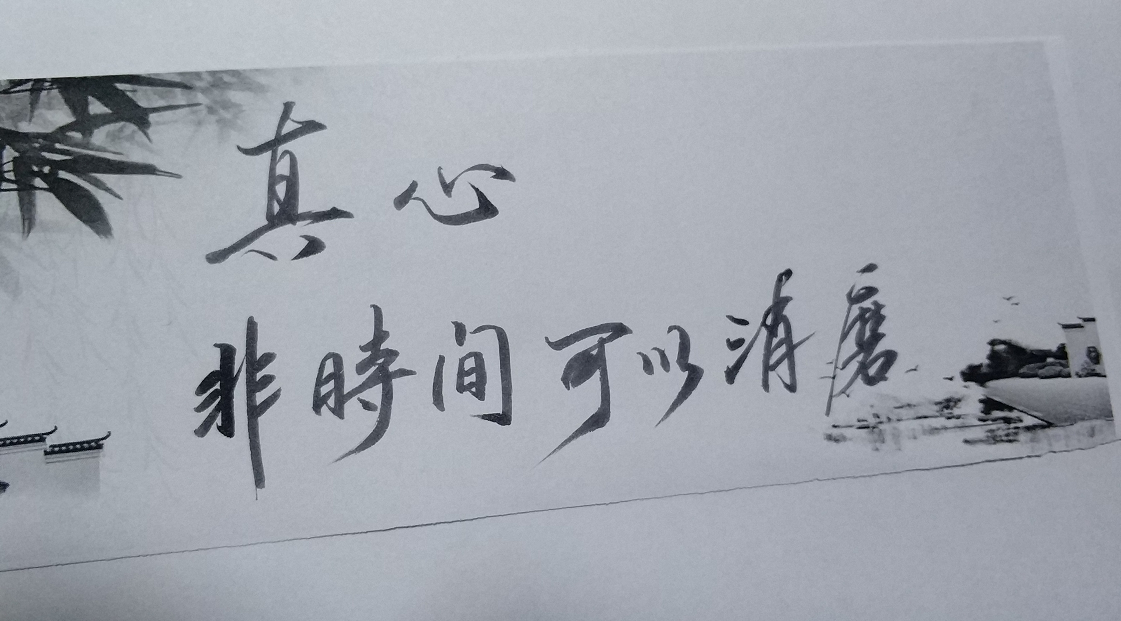 真心
非時间可以消磨